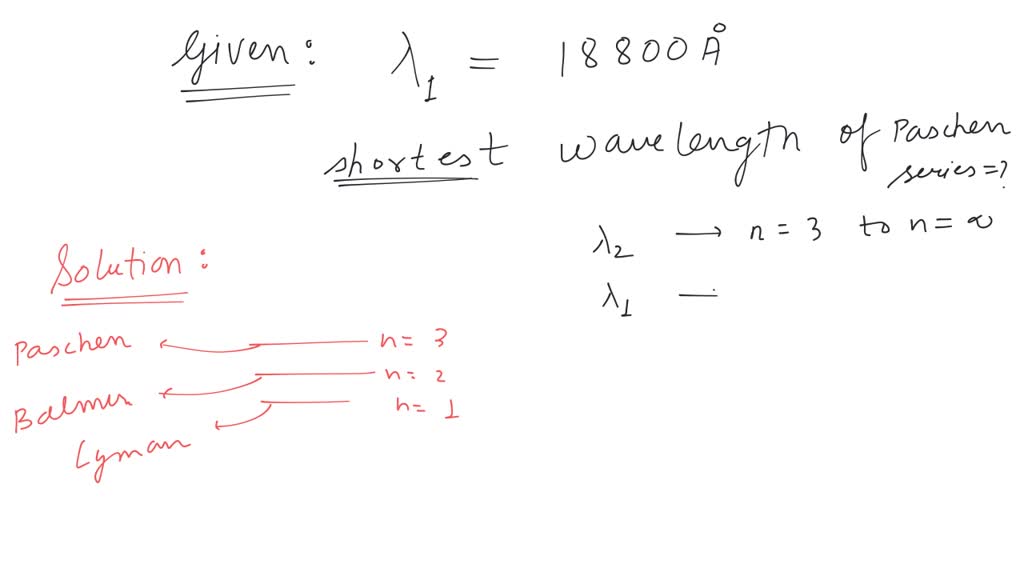 Given: λ₁ = 18800 Å
shortest wavelength of Paschen
series=?
λ₂ → n = 3 to n = ∞
λ₁ —
Solution:
Paschen n = 3
Balmer n = 2
Lyman n = 1